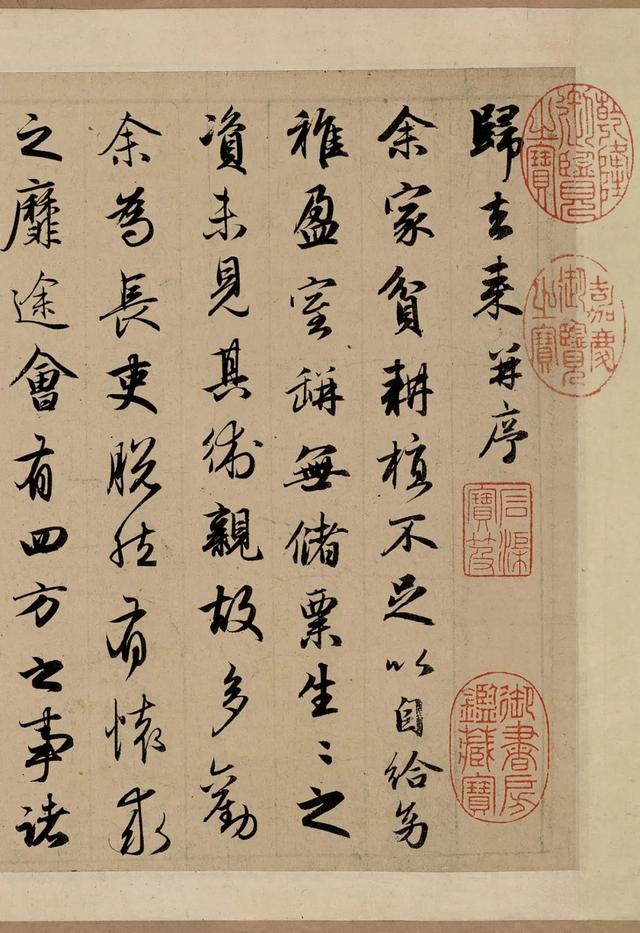 乾隆御覽之寶
嘉慶御覽之寶
石渠寶笈
御書房鑑藏寶
歸去來并序
余家貧耕植不足以自給幼
稚盈室缾無儲粟生〻之
資未見其術親故多勸
余為長吏脫然有懷求
之靡途會有四方之事諸